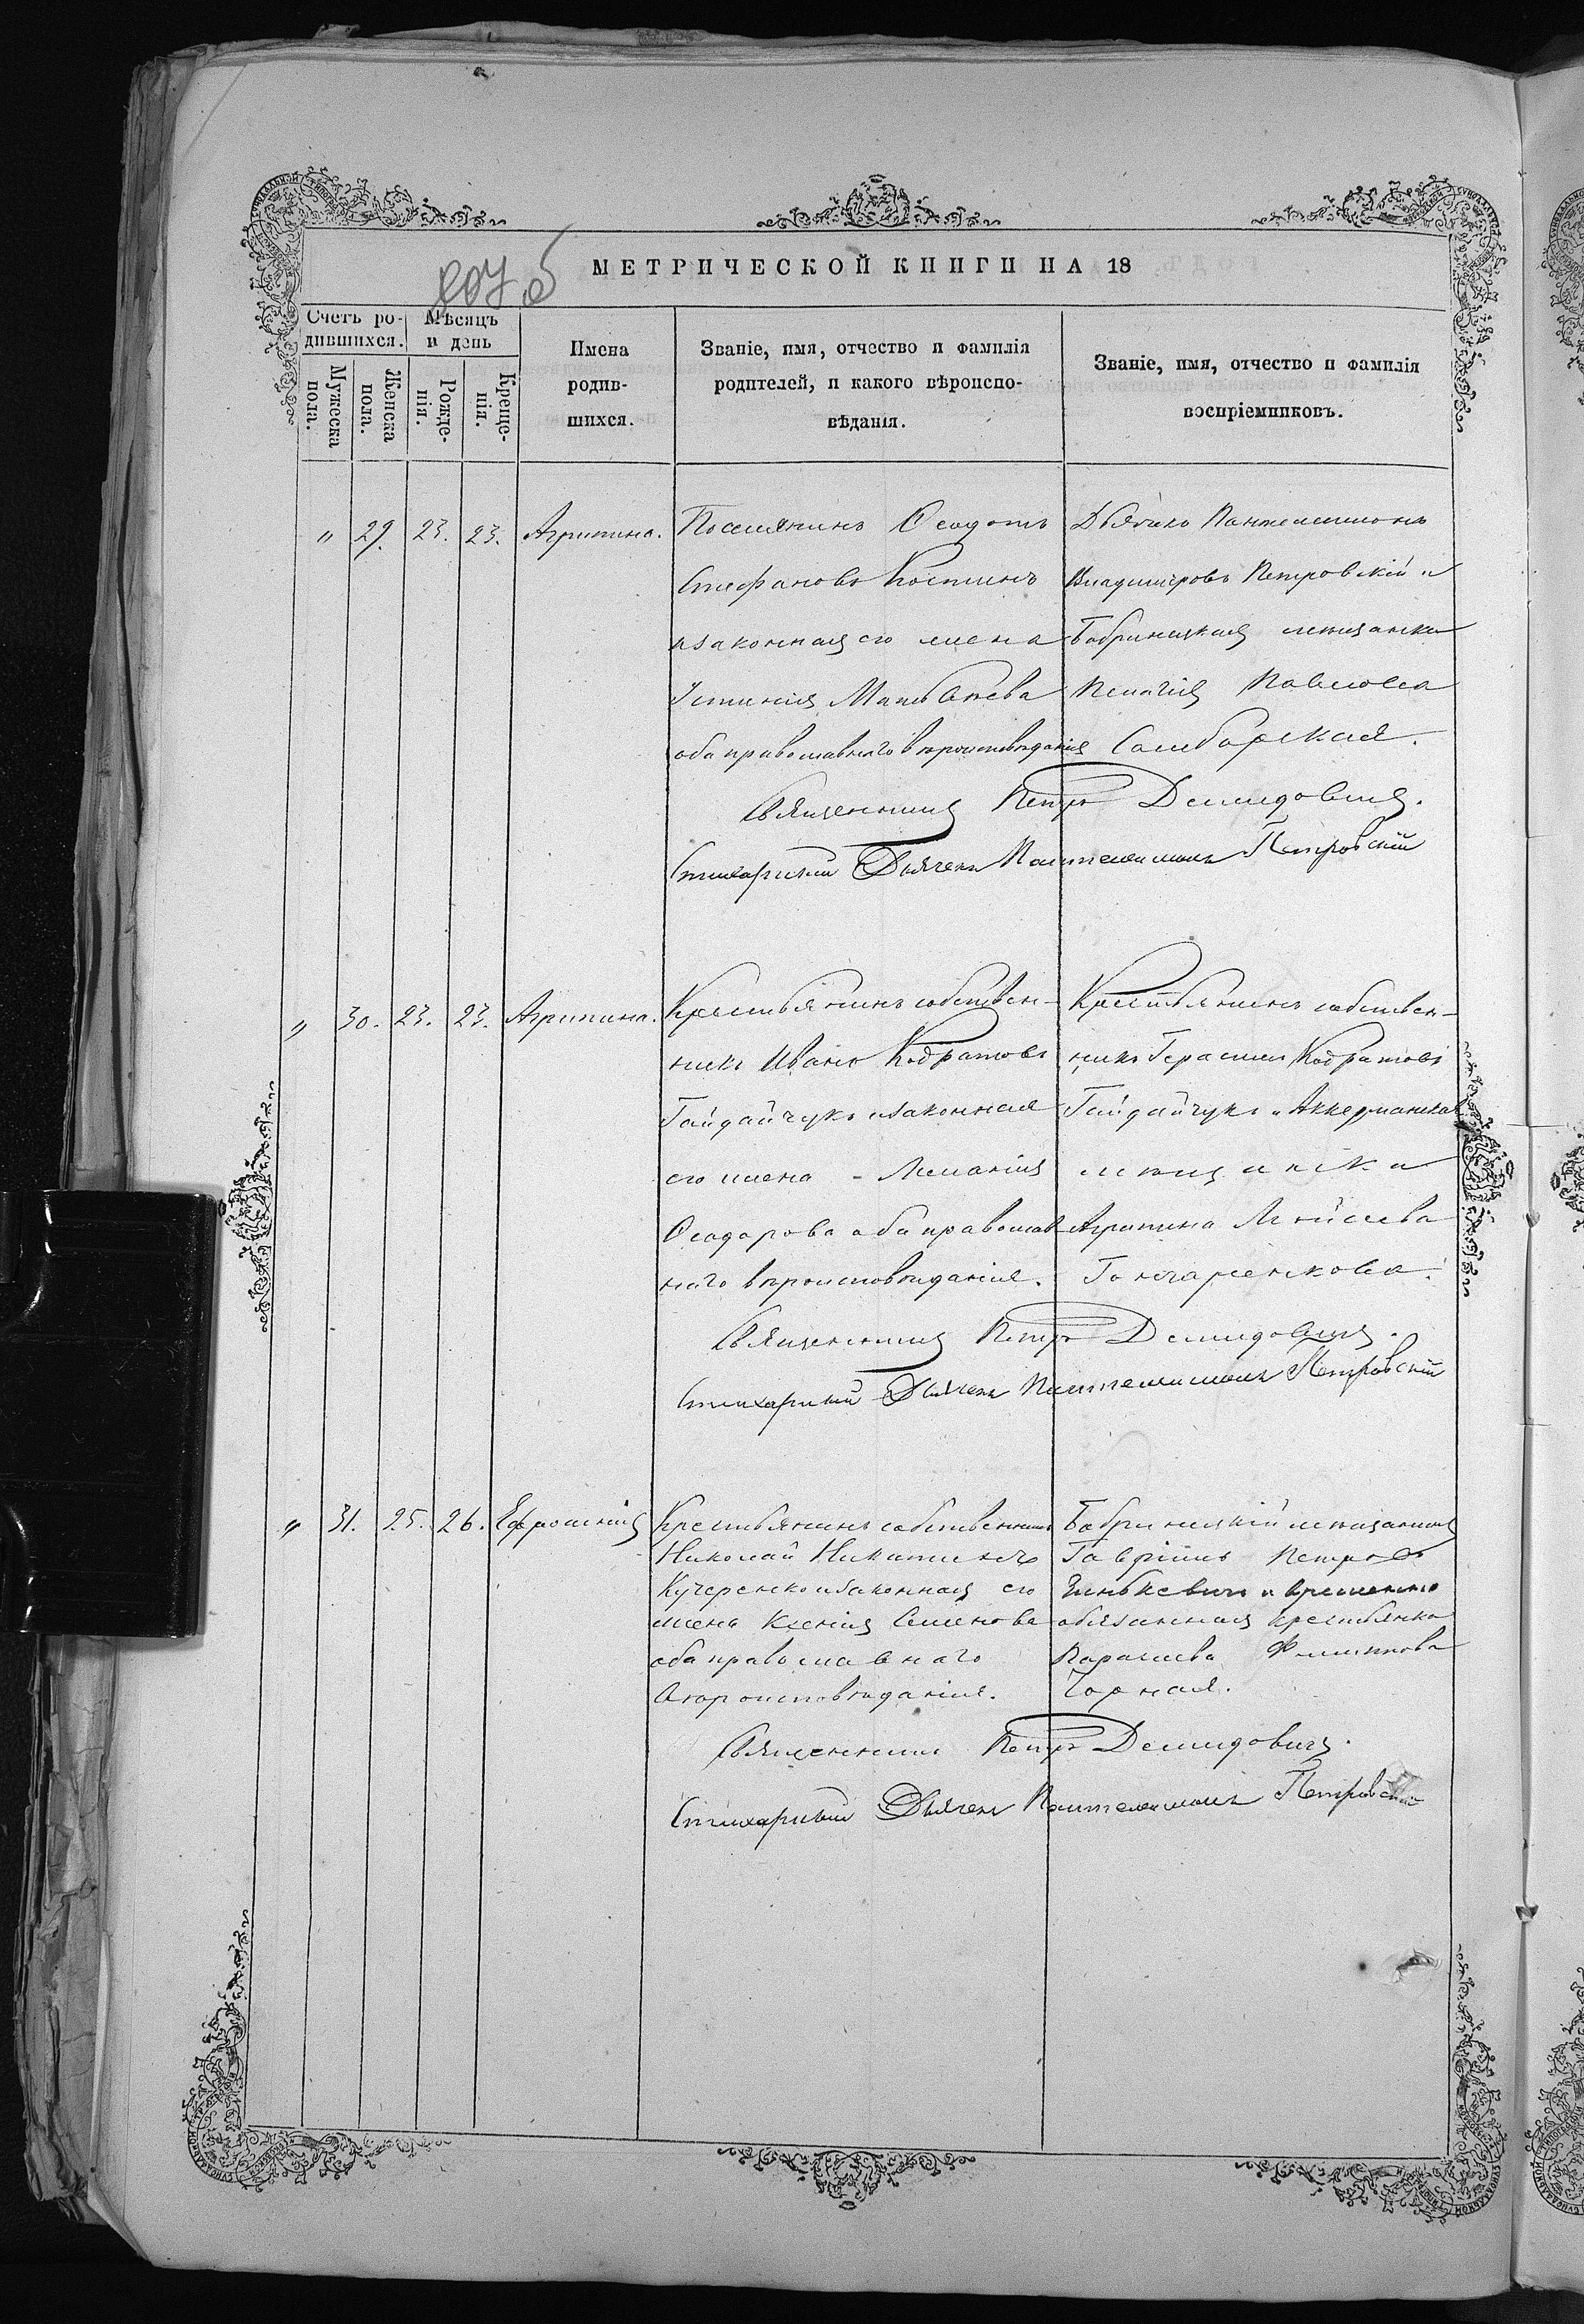 207 об
МЕТРИЧЕСКОЙ КНИГИ НА 18
Счетъ родившихся.
Мужеска пола.
Женска пола.
Мѣсяцъ и день
Рожденія.
Крещенія.
Имена родившихся.
Званіе, имя, отчество и фамилія родителей, и какого вѣроисповѣданія.
Званіе, имя, отчество и фамилія воспріемниковъ.
" 29. 23. 23. Агрипина.
Поселянинъ Ѳеодотъ
Стефановъ Костинъ
и законная его жена
Устинія Матвѣева
оба православнаго вѣроисповѣданія
Дьячекъ Пантелеимонъ
Владиміровъ Петровскій и
Бобринецкая мещанка
Пелагія Павлова
Самборская.
Священникъ Петръ Демидовичъ.
Стихарный Дьячекъ Пантелеимонъ Петровскій
" 30. 23. 23. Агрипина.
Крестьянинъ собствен-
никъ Иванъ Кодратовъ
Гайдайчукъ и законная
его жена - Меланія
Ѳеодорова оба православ
наго вѣроисповѣданія.
Крестьянинъ собствен-
никъ Герасим Кодратовъ
Гайдайчукъ и Аккерманская
мещанска
Агрипина Моисеева
Гончаренкова.
Священникъ Петръ Демидовичъ.
Стихарный Дьячекъ Пантелеимонъ Петровскій
" 31. 25. 26. Ефросинія
Крестьянинъ собственникъ
Николай Никитинъ
Кучеренко и законная его
жена Ксенія Семенова
оба православнаго
вѣроисповѣданія.
Бобринецкій мещанинъ
Гавріилъ Петровъ
и временно
обязанная крестьянка
Параскева Филиппова
Чорная.
Священникъ Петръ Демидовичъ.
Стихарный Дьячекъ Пантелеимонъ Петровскій